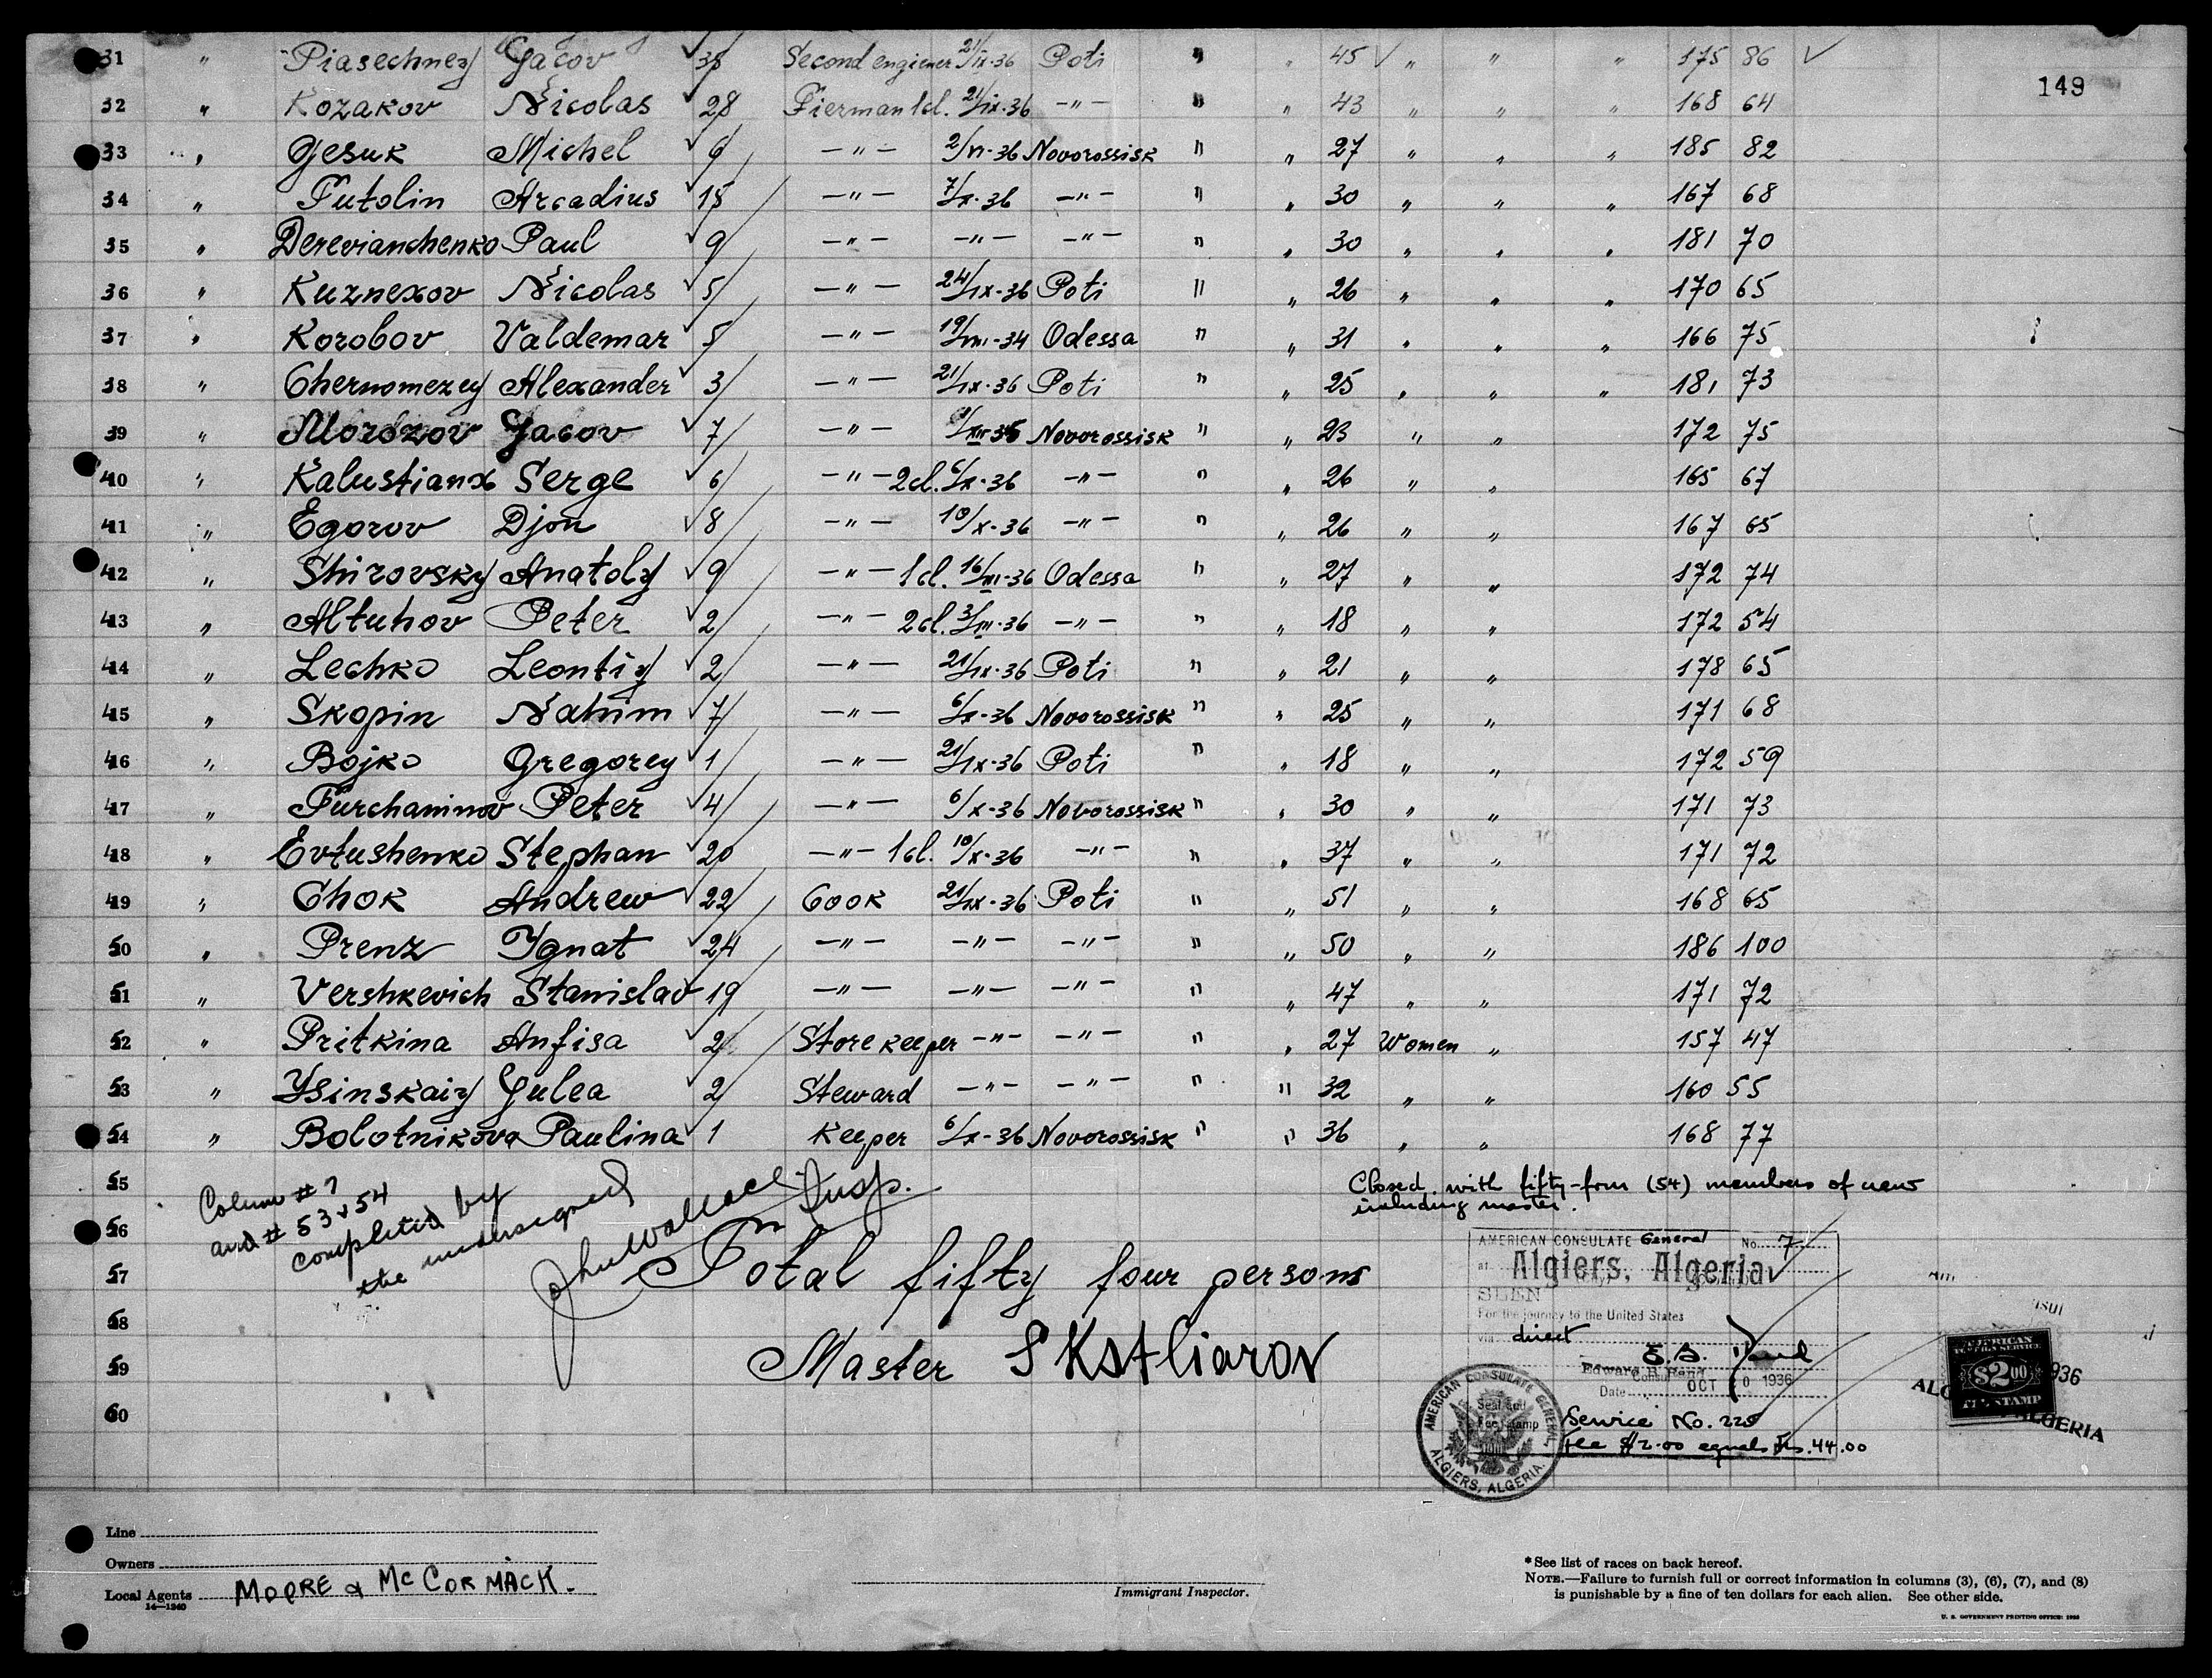 149
31 " Piasechney Gacov 35 Second engiener 21/IX-36 Poti " " 45 " " " 175 86
32 " Kozakov Nicolas 28 Fierman 1cl. 21/IX-36 -"- " " 43 " " " 168 64
33 " Gesuk Michel 6 -"- 2/VI-36 Novorossisk " " 27 " " " 185 82
34 " Futolin Arcadius 15 -"- 7/X-36 -"- " " 30 " " " 167 68
35 " Derevianchenko Paul 9 -"- -"- -"- " " 30 " " " 181 70
36 " Kuznexov Nicolas 5 -"- 24/IX-36 Poti " " 26 " " " 170 65
37 " Korobov Valdemar 5 -"- 19/VIII-34 Odessa " " 31 " " " 166 75
38 " Chernomezey Alexander 3 -"- 21/IX-36 Poti " " 25 " " " 181 73
39 " Morozov Gacov 7 -"- Novorossisk " " 23 " " 172 75
40 " Kalustianx Serge 6 -"- 2cl. 6/X-36 -"- " " 26 " " 165 67
41 " Egorov Djon 8 -"- 10/X-36 -"- " " 26 " " 167 65
42 " Shirovsky Anatoly 9 -"- 1cl. 16/III-36 Odessa " " 27 " " 172 74
43 " Altuhov Peter 2 -"- 2cl. 3/III-36 -"- " " 18 " " 172 54
44 " Lechko Leontiy 2 -"- 21/IX-36 Poti " " 21 " " 178 65
45 " Skopin Nahim 7 -"- 6/X-36 Novorossisk " " 25 " " 171 68
46 " Bojko Gregorey 1 -"- 21/IX-36 Poti " " 18 " " 172 59
47 " Furchaninov Peter 4 -"- 6/X-36 Novorossisk " " 30 " " 171 73
48 " Evtushenko Stephan 20 -"- 1cl. 10/X-36 -"- " " 37 " " 171 72
49 " Chok Andrew 22 Cook 21/IX-36 Poti " " 51 " " 168 65
50 " Prenz Ignat 24 -"- -"- -"- " " 50 " " 186 100
51 " Vershkevich Stanislav 19 -"- -"- -"- " " 47 " " 171 72
52 " Pritkina Anfisa 2 Store keeper -"- -"- " " 27 Women " 157 47
53 " Ysinskaiy Gulea 2 Steward -"- -"- " " 32 " " 160 55
54 " Bolotnikova Paulina 1 Keeper 6/X-36 Novorossisk " " 36 " " 168 77
55
56
57
58
59
60
Column # 7
and # 53 & 54
completed by
the undersigned
John Wallace Insp.
Closed with fifty-four (54) members of crew
including master.
Total fifty four persons
Master S Kstliarov
AMERICAN CONSULATE General No. 7
at Algiers, Algeria
SEEN
For the journey to the United States
via direct
Consul
Date OCT 1936
Service No. 225
Fee $2.00 equals Frs. 44.00
AMERICAN CONSULATE GENERAL,
ALGIERS, ALGERIA.
Seal and
Fee Stamp
AMERICAN
$2.00
FEE STAMP
1936
ALGERIA
Line
Owners
Local Agents MOORE & MC CORMACK.
14—1240
Immigrant Inspector.
* See list of races on back hereof.
NOTE.—Failure to furnish full or correct information in columns (3), (6), (7), and (8)
is punishable by a fine of ten dollars for each alien. See other side.
U. S. GOVERNMENT PRINTING OFFICE: